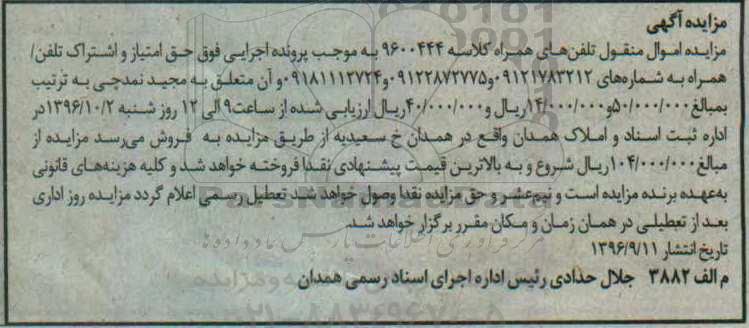 مزایده آگهی
مزایده اموال منقول تلفن‌های همراه کلاسه ۹۶۰۰۴۴۴ به موجب پرونده اجرایی فوق حق امتیاز و اشتراک تلفن/
همراه به شماره‌های ۰۹۱۲۱۷۸۳۲۱۲و۰۹۱۲۲۸۷۲۷۷۵و۰۹۱۸۱۱۱۲۷۲۴و آن متعلق به مجید نمدچی به ترتیب
بمبالغ۵۰/۰۰۰/۰۰۰و۱۴/۰۰۰/۰۰۰ریال و۴۰/۰۰۰/۰۰۰ریال ارزیابی شده از ساعت۹الی ۱۲ روز شنبه ۱۳۹۶/۱۰/۲در
اداره ثبت اسناد و املاک همدان واقع در همدان خ سعیدیه از طریق مزایده به فروش می‌رسد مزایده از
مبالغ۱۰۴/۰۰۰/۰۰۰ریال شروع و به بالاترین قیمت پیشنهادی نقدا فروخته خواهد شد و کلیه هزینه‌های قانونی
به‌عهده برنده مزایده است و نیم‌عشر و حق مزایده نقدا وصول خواهد شد تعطیل رسمی اعلام گردد مزایده روز اداری
بعد از تعطیلی در همان زمان و مکان مقرر برگزار خواهد شد.
تاریخ انتشار ۱۳۹۶/۹/۱۱
م الف ۳۸۸۲ جلال حدادی رئیس اداره اجرای اسناد رسمی همدان